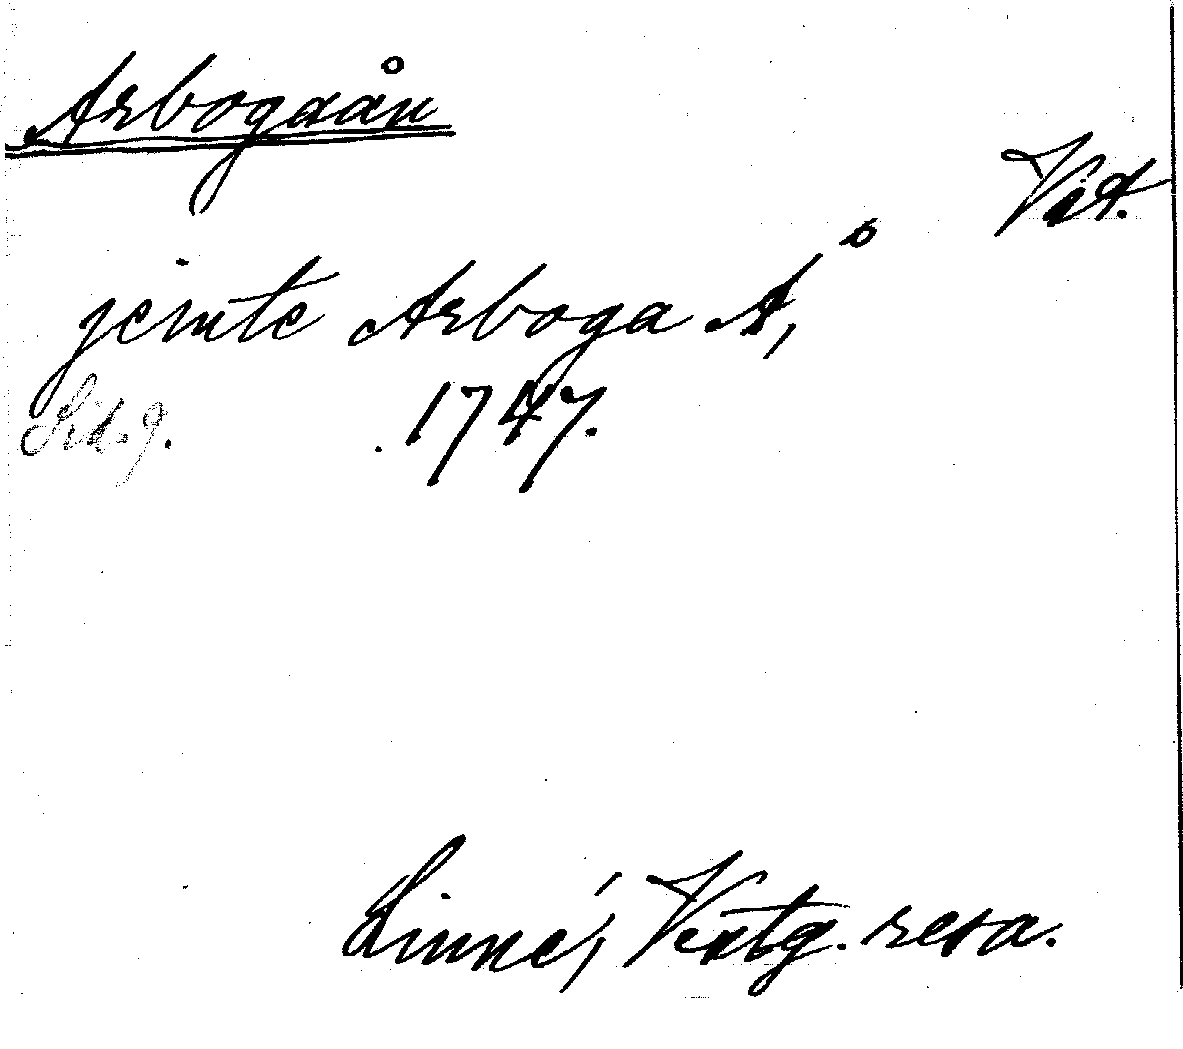 Arbogaån
Vst.
jemte Arboga Å,
Sid. 9. 1747.
Linné, Vestg. resa.